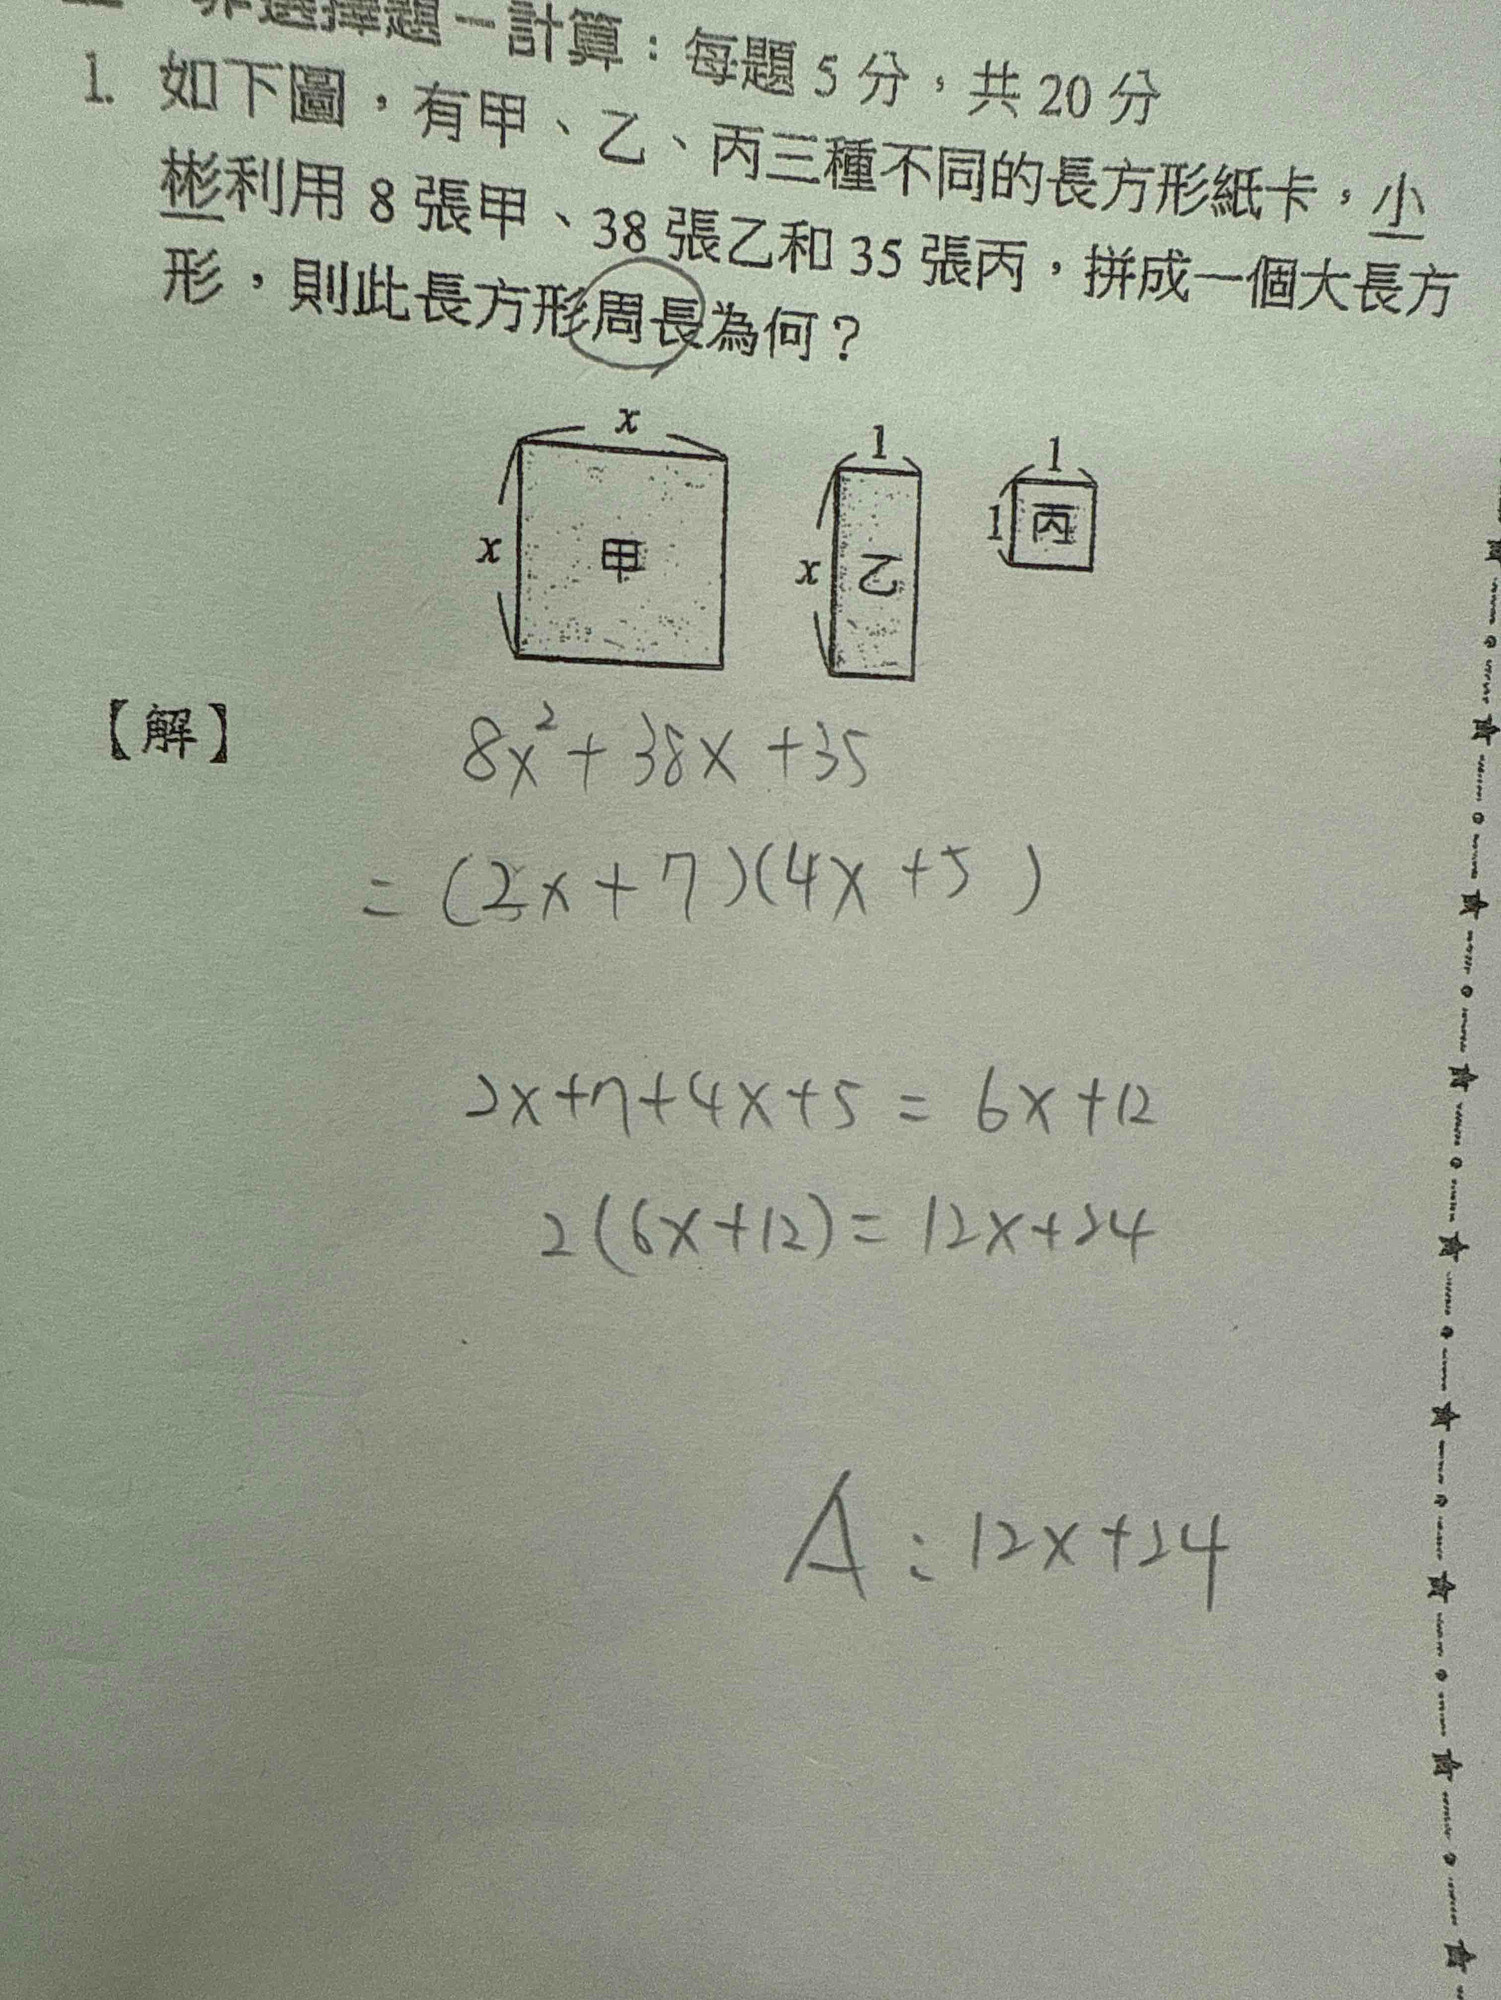 非選擇題－計算：每題 5 分，共 20 分
1. 如下圖，有甲、乙、丙三種不同的長方形紙卡，小
彬利用 8 張甲、38 張乙和 35 張丙，拼成一個大長方
形，則此長方形周長為何？
x
1
1
x
甲
x
乙
1
丙
【解】
8x²+38x+35
=(2x+7)(4x+5)
2x+7+4x+5=6x+12
2(6x+12)=12x+24
A:12x+24